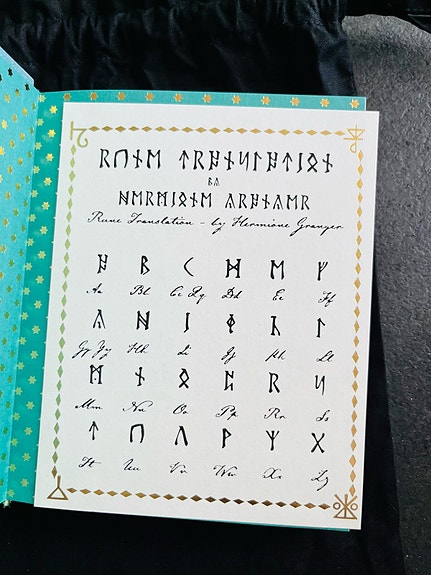 ᚱᚢᚾᛖ ᛏᚱᚨᚾᛋᛚᚨᛏᛁᛟᚾ
ᛒᚤ
ᚺᛖᚱᛗᛁᛟᚾᛖ ᚤᚱᚨᚾᚤᛖᚱ
Rune Translation - by Hermione Granger
ᚨ ᛒ ᚲ ᛞ ᛖ ᚠ
Aa Bb Cc Qq Dd Ee Ff
ᚤ ᚺ ᛁ ᛄ ᚳ ᛚ
Gg Yy Hh Ii Jj Kk Ll
ᛗ ᚾ ᛟ ᛈ ᚱ ᛋ
Mm Nn Oo Pp Rr Ss
ᛏ ᚢ ᚥ ᚹ ᛉ ᚷ
Tt Uu Vv Ww Xx Zz